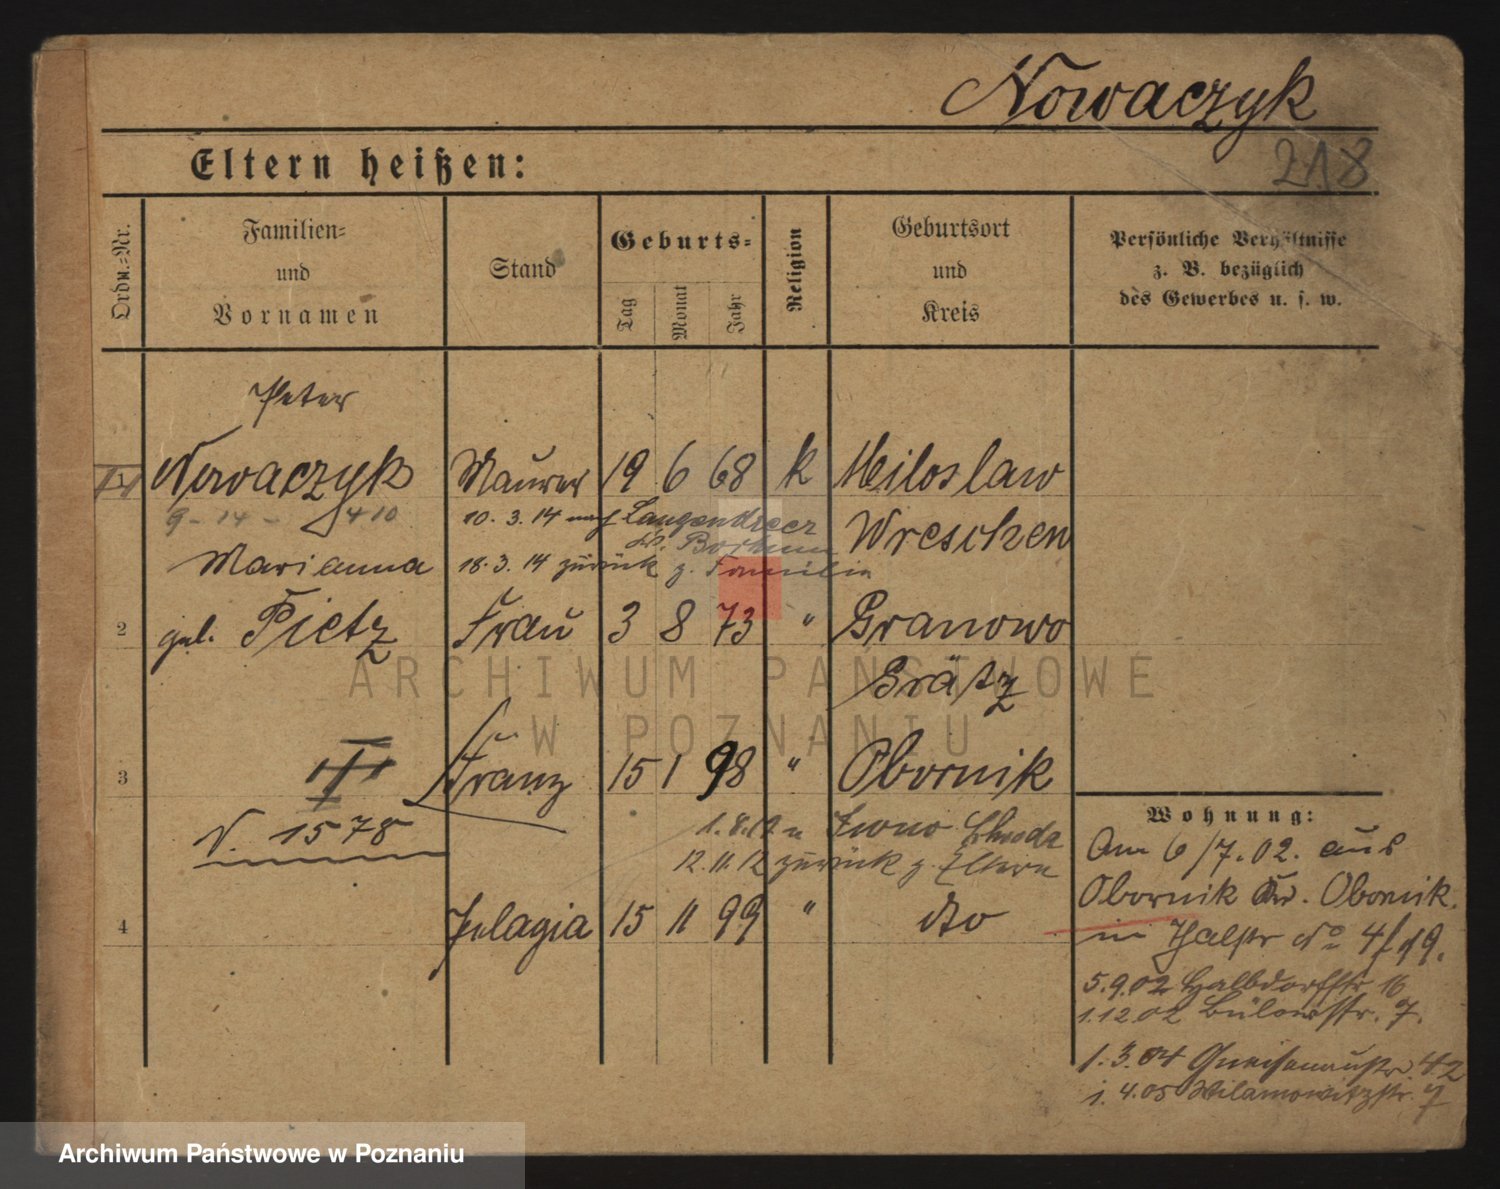 Nowaczyk
218
Eltern heißen:
Ordn.-Nr.
Familien-
und
Vornamen
Stand
Geburts-
Tag
Monat
Jahr
Religion
Geburtsort
und
Kreis
Persönliche Verhältnisse
z. B. bezüglich
des Gewerbes u. s. w.
Peter
Nowaczyk Maurer 19 6 68 k Miloslaw
9 - 14 - 410 10. 3. 14 nach Langendreer Wreschen
Kr. Bochum
Marianna 18. 3. 14 zurück z. Familie
2 geb. Pietz Frau 3 8 73 " Granowo
Grätz
ARCHIWUM PAŃSTWOWE
W POZNANIU
3 Franz 15 1 98 " Obornik
N. 1578
12. 11. 12 zurück z. Eltern
4 Pelagia 15 11 99 " dto
Wohnung:
Am 6/7. 02. aus
Obornik Kr. Obornik.
in Thalstr No 4
5. 9. 02 Halbdorffstr. 16
1. 12. 02 Bülowstr. 7.
1. 3. 04 Gneisenaustr. 42
1. 4. 05 Wilamowitzstr. 7
Archiwum Państwowe w Poznaniu